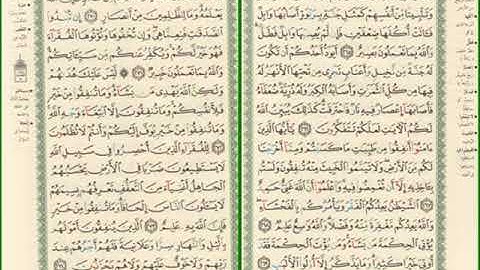 وَتَثْبِيتًا مِّنْ أَنفُسِهِمْ كَمَثَلِ جَنَّةٍ بِرَبْوَةٍ أَصَابَهَا وَابِلٌ
فَـَٔاتَتْ أُكُلَهَا ضِعْفَيْنِ فَإِن لَّمْ يُصِبْهَا وَابِلٌ فَطَلٌّ
وَٱللَّهُ بِمَا تَعْمَلُونَ بَصِيرٌ ٢٦٥ أَيَوَدُّ أَحَدُكُمْ أَن تَكُونَ
لَهُۥ جَنَّةٌ مِّن نَّخِيلٍ وَأَعْنَابٍ تَجْرِى مِن تَحْتِهَا ٱلْأَنْهَـٰرُ لَهُۥ
فِيهَا مِن كُلِّ ٱلثَّمَرَٰتِ وَأَصَابَهُ ٱلْكِبَرُ وَلَهُۥ ذُرِّيَّةٌ ضُعَفَآءُ
فَأَصَابَهَآ إِعْصَارٌ فِيهِ نَارٌ فَٱحْتَرَقَتْ كَذَٰلِكَ يُبَيِّنُ ٱللَّهُ
لَكُمُ ٱلْـَٔايَـٰتِ لَعَلَّكُمْ تَتَفَكَّرُونَ ٢٦٦ يَـٰٓأَيُّهَا ٱلَّذِينَ
ءَامَنُوٓا۟ أَنفِقُوا۟ مِن طَيِّبَـٰتِ مَا كَسَبْتُمْ وَمِمَّآ أَخْرَجْنَا
لَكُم مِّنَ ٱلْأَرْضِ وَلَا تَيَمَّمُوا۟ ٱلْخَبِيثَ مِنْهُ تُنفِقُونَ وَلَسْتُم
بِـَٔاخِذِيهِ إِلَّآ أَن تُغْمِضُوا۟ فِيهِ وَٱعْلَمُوٓا۟ أَنَّ ٱللَّهَ غَنِىٌّ حَمِيدٌ
٢٦٧ ٱلشَّيْطَـٰنُ يَعِدُكُمُ ٱلْفَقْرَ وَيَأْمُرُكُم بِٱلْفَحْشَآءِ
وَٱللَّهُ يَعِدُكُم مَّغْفِرَةً مِّنْهُ وَفَضْلًا وَٱللَّهُ وَٰسِعٌ عَلِيمٌ ٢٦٨
يُؤْتِى ٱلْحِكْمَةَ مَن يَشَآءُ وَمَن يُؤْتَ ٱلْحِكْمَةَ فَقَدْ
أُوتِىَ خَيْرًا كَثِيرًا وَمَا يَذَّكَّرُ إِلَّآ أُو۟لُوا۟ ٱلْأَلْبَـٰبِ ٢٦٩
يَعْلَمُهُۥ وَمَا لِلظَّـٰلِمِينَ مِنْ أَنصَارٍ ٢٧٠ إِن تُبْدُوا۟
ٱلصَّدَقَـٰتِ فَنِعِمَّا هِىَ وَإِن تُخْفُوهَا وَتُؤْتُوهَا ٱلْفُقَرَآءَ
فَهُوَ خَيْرٌ لَّكُمْ وَيُكَفِّرُ عَنكُم مِّن سَيِّـَٔاتِكُمْ
وَٱللَّهُ بِمَا تَعْمَلُونَ خَبِيرٌ ٢٧١ لَّيْسَ عَلَيْكَ هُدَىٰهُمْ
وَلَـٰكِنَّ ٱللَّهَ يَهْدِى مَن يَشَآءُ وَمَا تُنفِقُوا۟ مِنْ خَيْرٍ
فَلِأَنفُسِكُمْ وَمَا تُنفِقُونَ إِلَّا ٱبْتِغَآءَ وَجْهِ ٱللَّهِ
وَمَا تُنفِقُوا۟ مِنْ خَيْرٍ يُوَفَّ إِلَيْكُمْ وَأَنتُمْ لَا تُظْلَمُونَ
٢٧٢ لِلْفُقَرَآءِ ٱلَّذِينَ أُحْصِرُوا۟ فِى سَبِيلِ ٱللَّهِ
لَا يَسْتَطِيعُونَ ضَرْبًا فِى ٱلْأَرْضِ يَحْسَبُهُمُ
ٱلْجَاهِلُ أَغْنِيَآءَ مِنَ ٱلتَّعَفُّفِ تَعْرِفُهُم بِسِيمَـٰهُمْ
لَا يَسْـَٔلُونَ ٱلنَّاسَ إِلْحَافًا وَمَا تُنفِقُوا۟ مِنْ خَيْرٍ
فَإِنَّ ٱللَّهَ بِهِۦ عَلِيمٌ ٢٧٣ ٱلَّذِينَ يُنفِقُونَ أَمْوَٰلَهُم
بِٱلَّيْلِ وَٱلنَّهَارِ سِرًّا وَعَلَانِيَةً فَلَهُمْ أَجْرُهُمْ عِندَ
رَبِّهِمْ وَلَا خَوْفٌ عَلَيْهِمْ وَلَا هُمْ يَحْزَنُونَ ٢٧٤